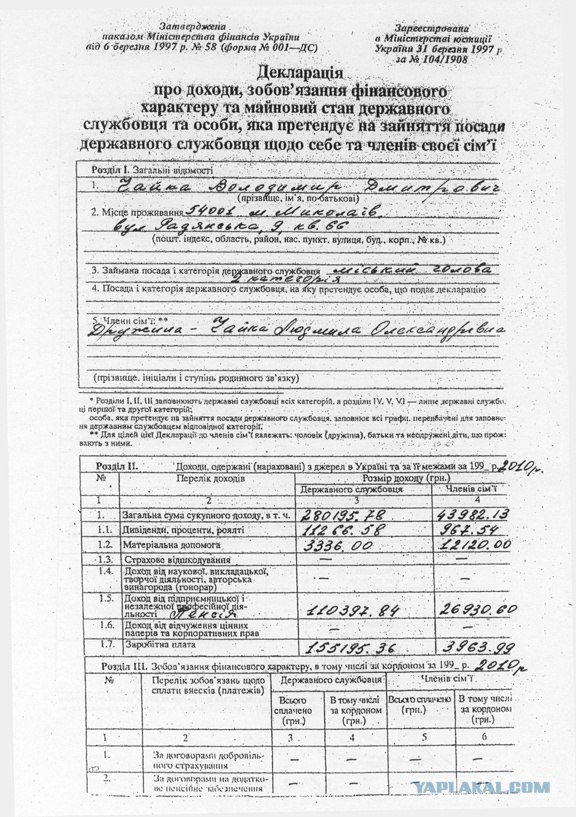 Затверджена
наказом Міністерства фінансів України
від 6 березня 1997 р. № 58 (форма № 001—ДС)
Зареєстрована
в Міністерстві юстиції
України 31 березня 1997 р.
за № 104/1908
Декларація
про доходи, зобов'язання фінансового
характеру та майновий стан державного
службовця та особи, яка претендує на зайняття посади
державного службовця щодо себе та членів своєї сім'ї
Розділ I. Загальні відомості
1. Чайка Володимир Дмитрович
(прізвище, ім'я, по-батькові)
2. Місце проживання 54001 м. Миколаїв,
вул. Радянська, 9, кв. 66
(пошт. індекс, область, район, нас. пункт, вулиця, буд., корп., № кв.)
3. Займана посада і категорія державного службовця міський голова
2 категорія
4. Посада і категорія державного службовця, на яку претендує особа, що подає декларацію
5. Члени сім'ї: **
Дружина - Чайка Людмила Олександрівна
(прізвище, ініціали і ступінь родинного зв'язку)
* Розділи I, II, III заповнюють державні службовці всіх категорій, а розділи IV, V, VI — лише державні службовці
ці першої та другої категорій;
особа, яка претендує на зайняття посади державного службовця, заповнює всі графи, передбачені для заповне-
ня державним службовцем відповідної категорії.
** Для цілей цієї Декларації до членів сім'ї належать: чоловік (дружина), батьки та неодружені діти, що прож.
вають з ними.
Розділ II. Доходи, одержані (нараховані) з джерел в Україні та за її межами за 199_ р. 2010 р.
№ Перелік доходів Розмір доходу (грн.)
Державного службовця Членів сім'ї
1 2 3 4
1. Загальна сума сукупного доходу, в т. ч. 280195.78 43982.13
1.1. Дивіденди, проценти, роялті 11266.58 967.54
1.2. Матеріальна допомога 3336.00 12120.00
1.3. Страхове відшкодування — —
1.4. Доход від наукової, викладацької,
творчої діяльності, авторська
винагорода (гонорар) — —
1.5. Доход від підприємницької і
незалежної професійної дія-
льності Пенсія 110397.84 26930.60
1.6. Доход від відчуження цінних
паперів та корпоративних прав — —
1.7. Заробітна плата 155195.36 3963.99
Розділ III. Зобов'язання фінансового характеру, в тому числі за кордоном за 199_ р. 2010 р.
№ Перелік зобов'язань щодо
сплати внесків (платежів)
Державного службовця Членів сім'ї
Всього
сплачено
(грн.)
В тому числі
за кордоном
(грн.)
Всього сплачено
(грн.)
В тому числі
за кордоном
(грн.)
1 2 3 4 5 6
1. За договорами добровіль-
ного страхування — — — —
2. За договорами на додатко-
ве пенсійне забезпечення — — — —
YAPLAKAL.COM